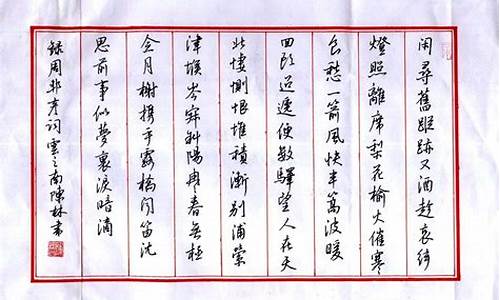 閑尋舊蹤跡又酒趁哀絃
燈照離席梨花榆火催寒
食愁一箭風快半篙波暖
回頭迢遞便數驛望人在天
北悽惻恨堆積漸別浦縈
津堠岑寂斜陽冉春無極
念月榭攜手露橋聞笛沈
思前事似夢裏淚暗滴
錄周邦彥詞雲之南陳林書